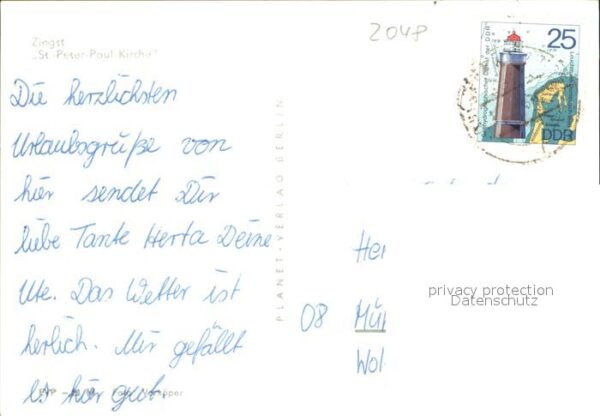 Zingst
„St.-Peter-Paul-Kirche"
2048
25
DDR
Die herzlichsten
Urlaubsgrüße von
hier sendet Dir
liebe Tante Herta Deine
Ute. Das Wetter ist
herlich. Mir gefällt
es hier gut.
PLANET-VERLAG BERLIN
Her
08 Mül
Wol
privacy protection
Datenschutz